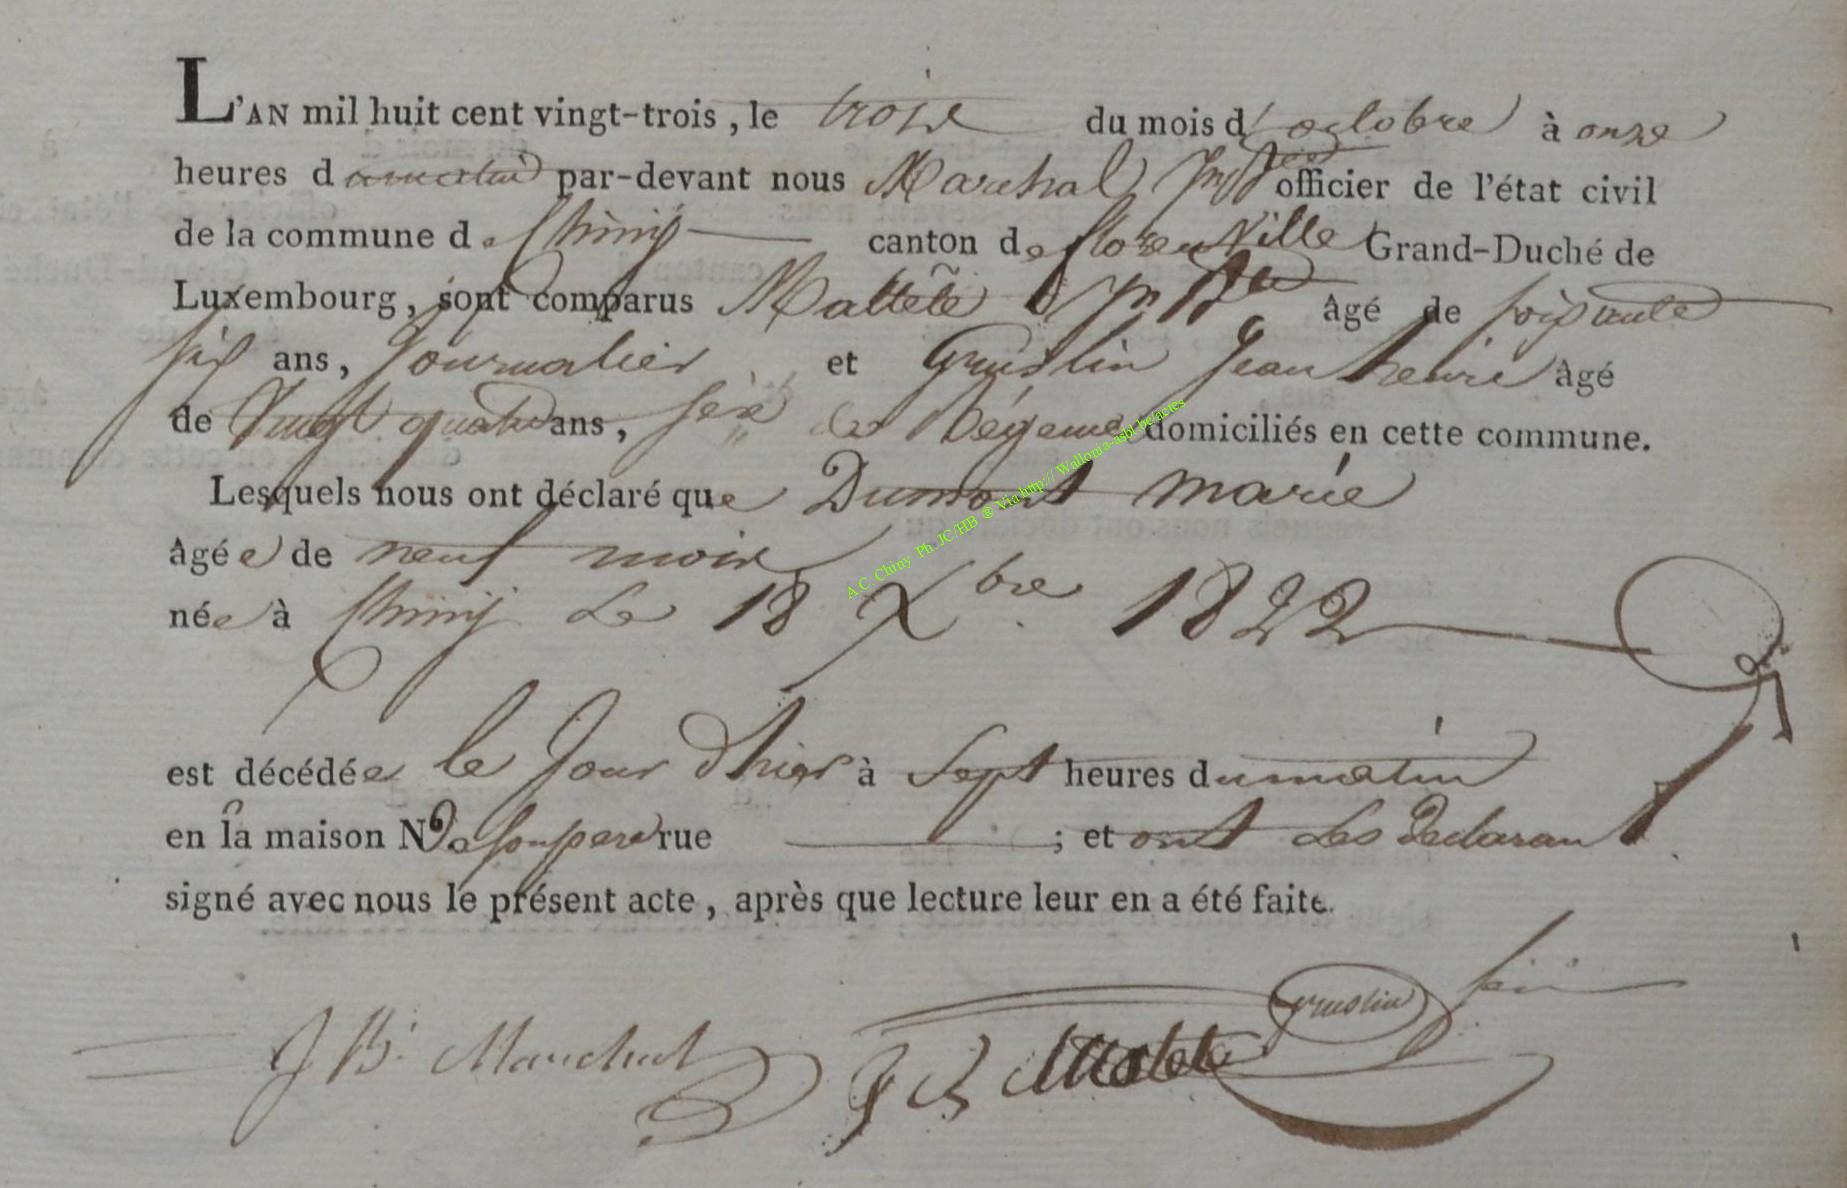 L'AN mil huit cent vingt-trois, le trois du mois d'octobre à onze
heures du matin par-devant nous Marchal officier de l'état civil
de la commune de Chiny canton de florenville Grand-Duché de
Luxembourg, sont comparus âgé de soixante
six ans, Journalier et Gruslin Jean henrie âgé
de Vingt quatre ans, domiciliés en cette commune.
Lesquels nous ont déclaré que Dumont marie
âgée de neuf mois
née à Chiny Le 18 Xbre 1822
est décédée le Jour d'hier à Sept heures du matin
en la maison N° de son pere rue ; et ont Les Declarant
signé avec nous le présent acte, après que lecture leur en a été faite.
Gruslin
J B. Marchal
A.C. Chiny Ph. JC/HB ® Via http:// Wallonia-asbl.be/actes